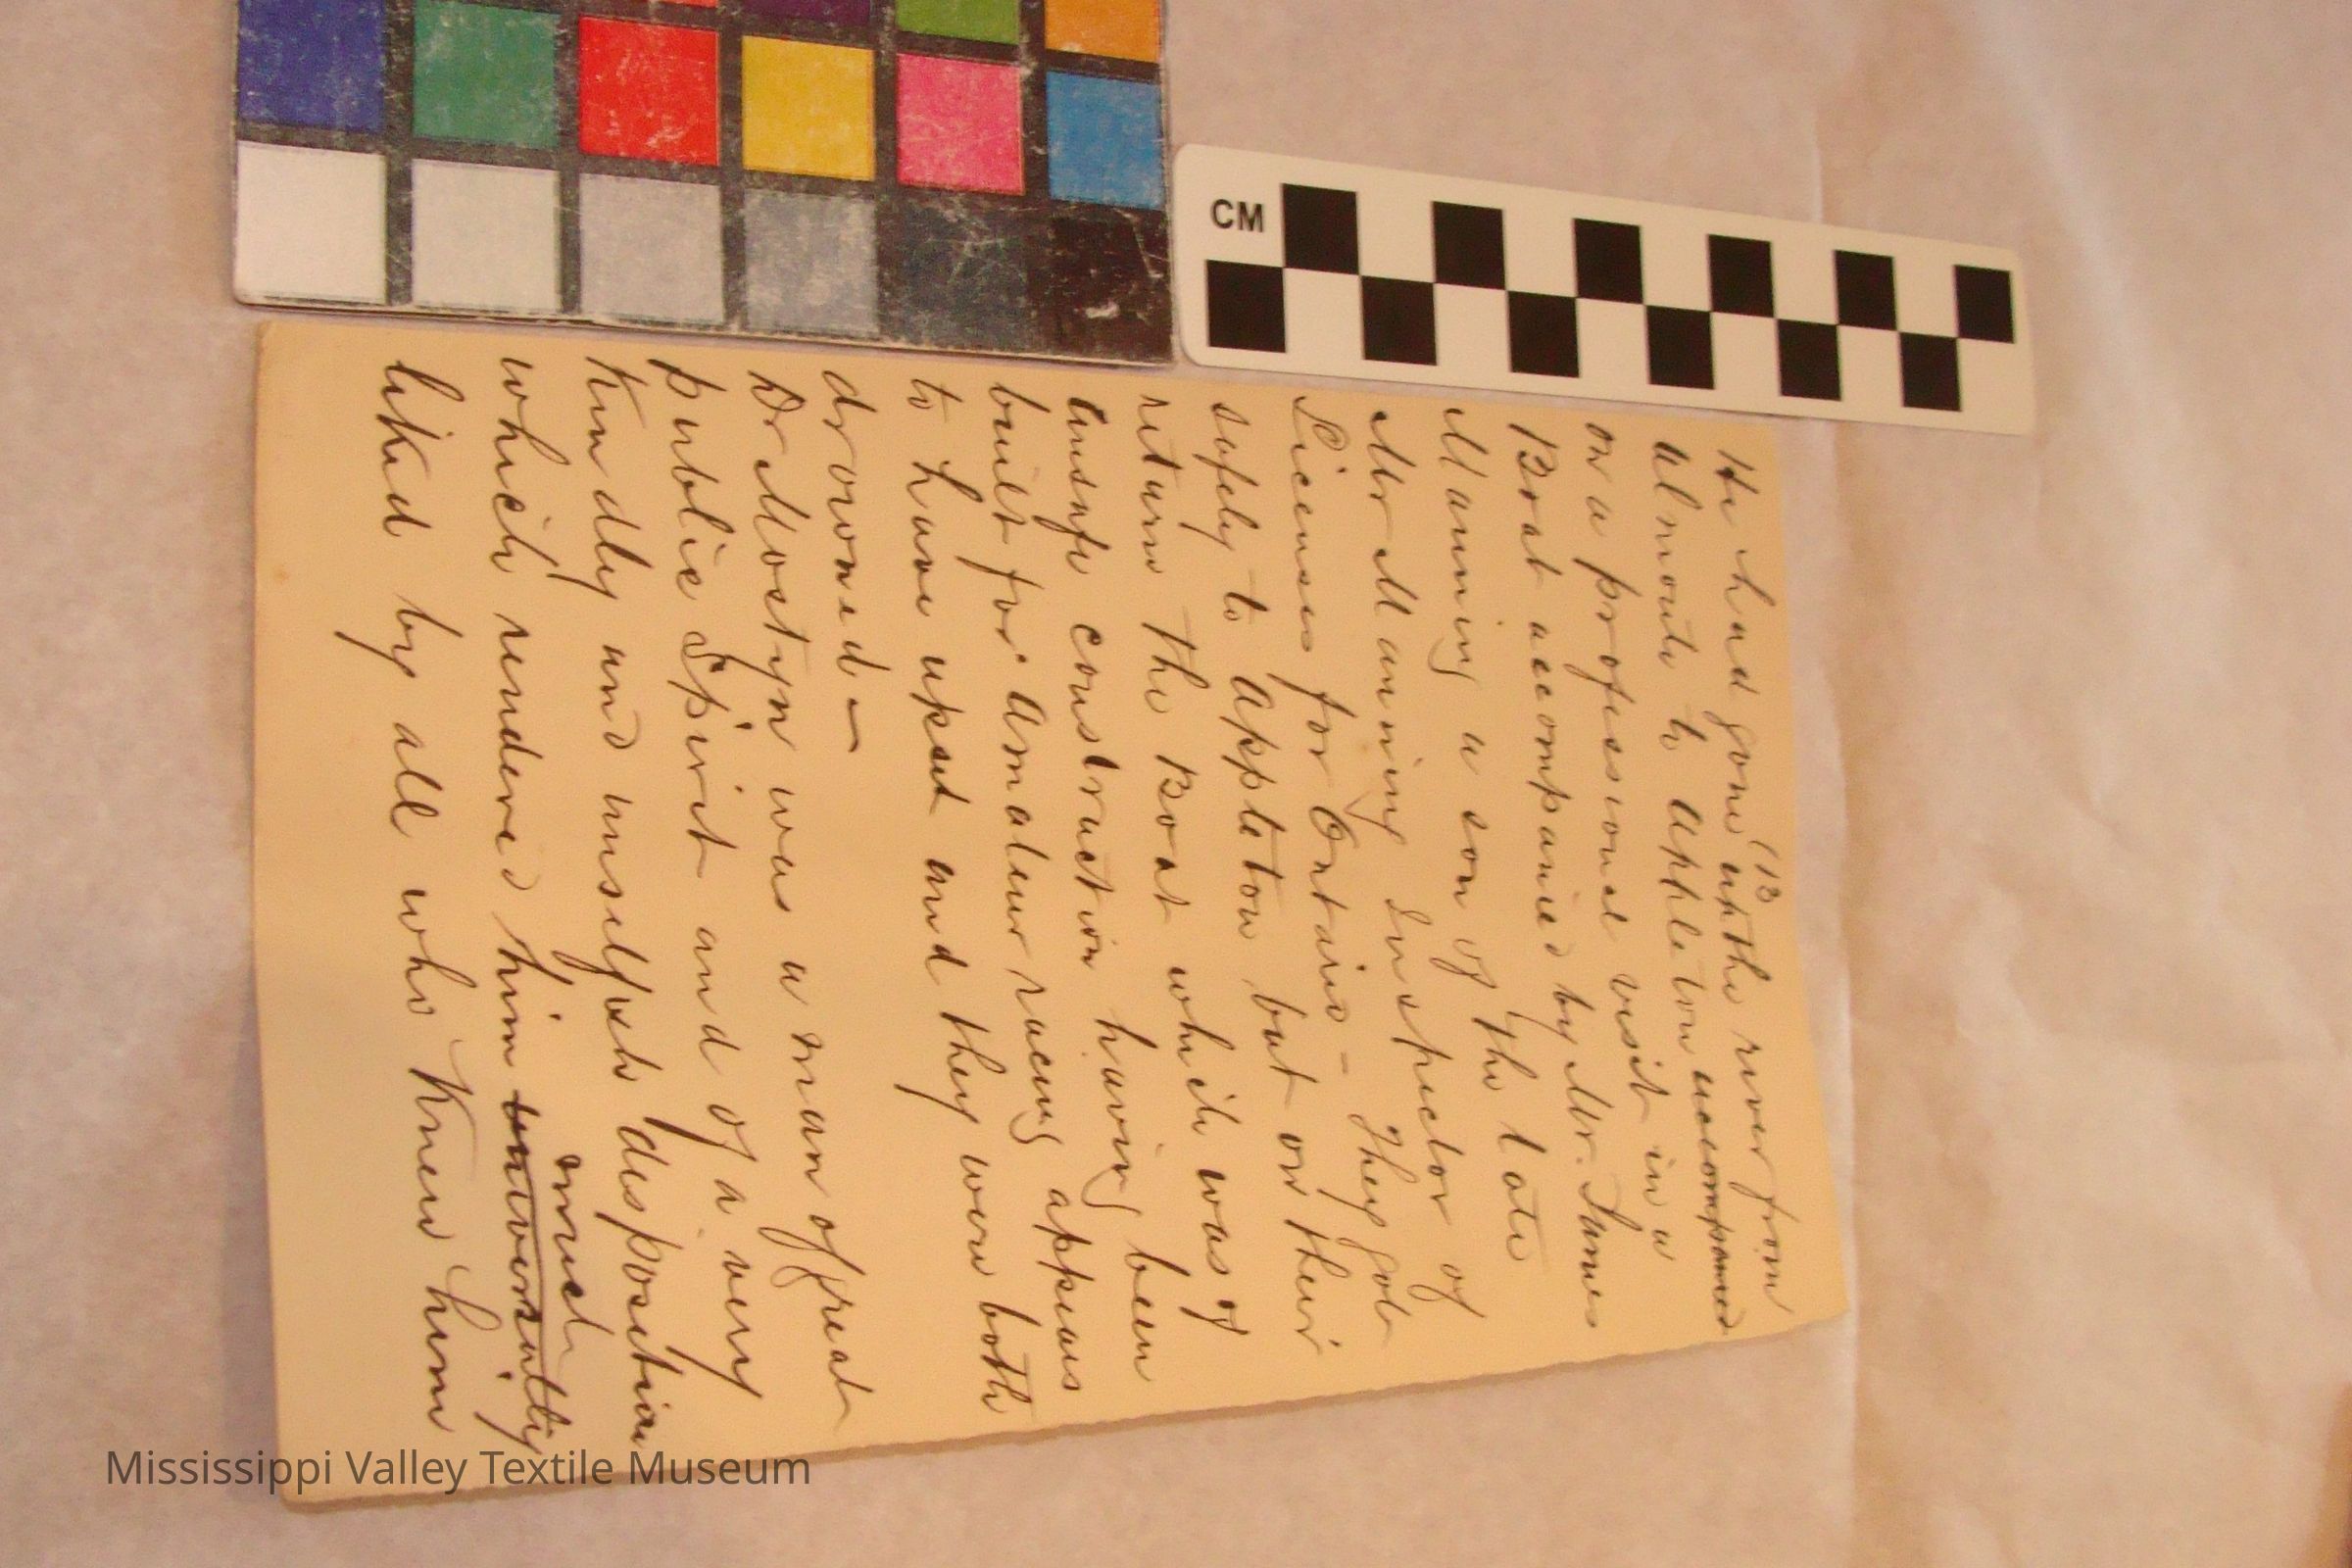 (13
He had gone up the river from
Almonte to Appleton accompanied
on a professional visit in a
Boat accompanied by Mr. James
Manning a son of the late
Mr Manning Inspector of
Licenses for Ontario - They got
safely to Appleton but on their
return the Boat which was of
unsafe construction having been
built for amateur racing appears
to have upset and they were both
drowned -
Dr Mostyn was a man of great
public Spirit and of a very
Kindly and unselfish disposition
much
which rendered him universally
liked by all who Knew him
CM
Mississippi Valley Textile Museum